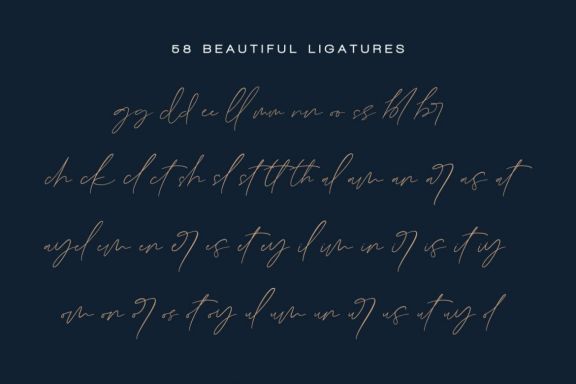 58 BEAUTIFUL LIGATURES
gg dd ee ll mm nn oo ss bl br
ch ck cl ct sh sl st tt th al am an ar as at
ay el em en er es et ey il im in ir is it iy
om on or os ot oy ul um un ur us ut uy